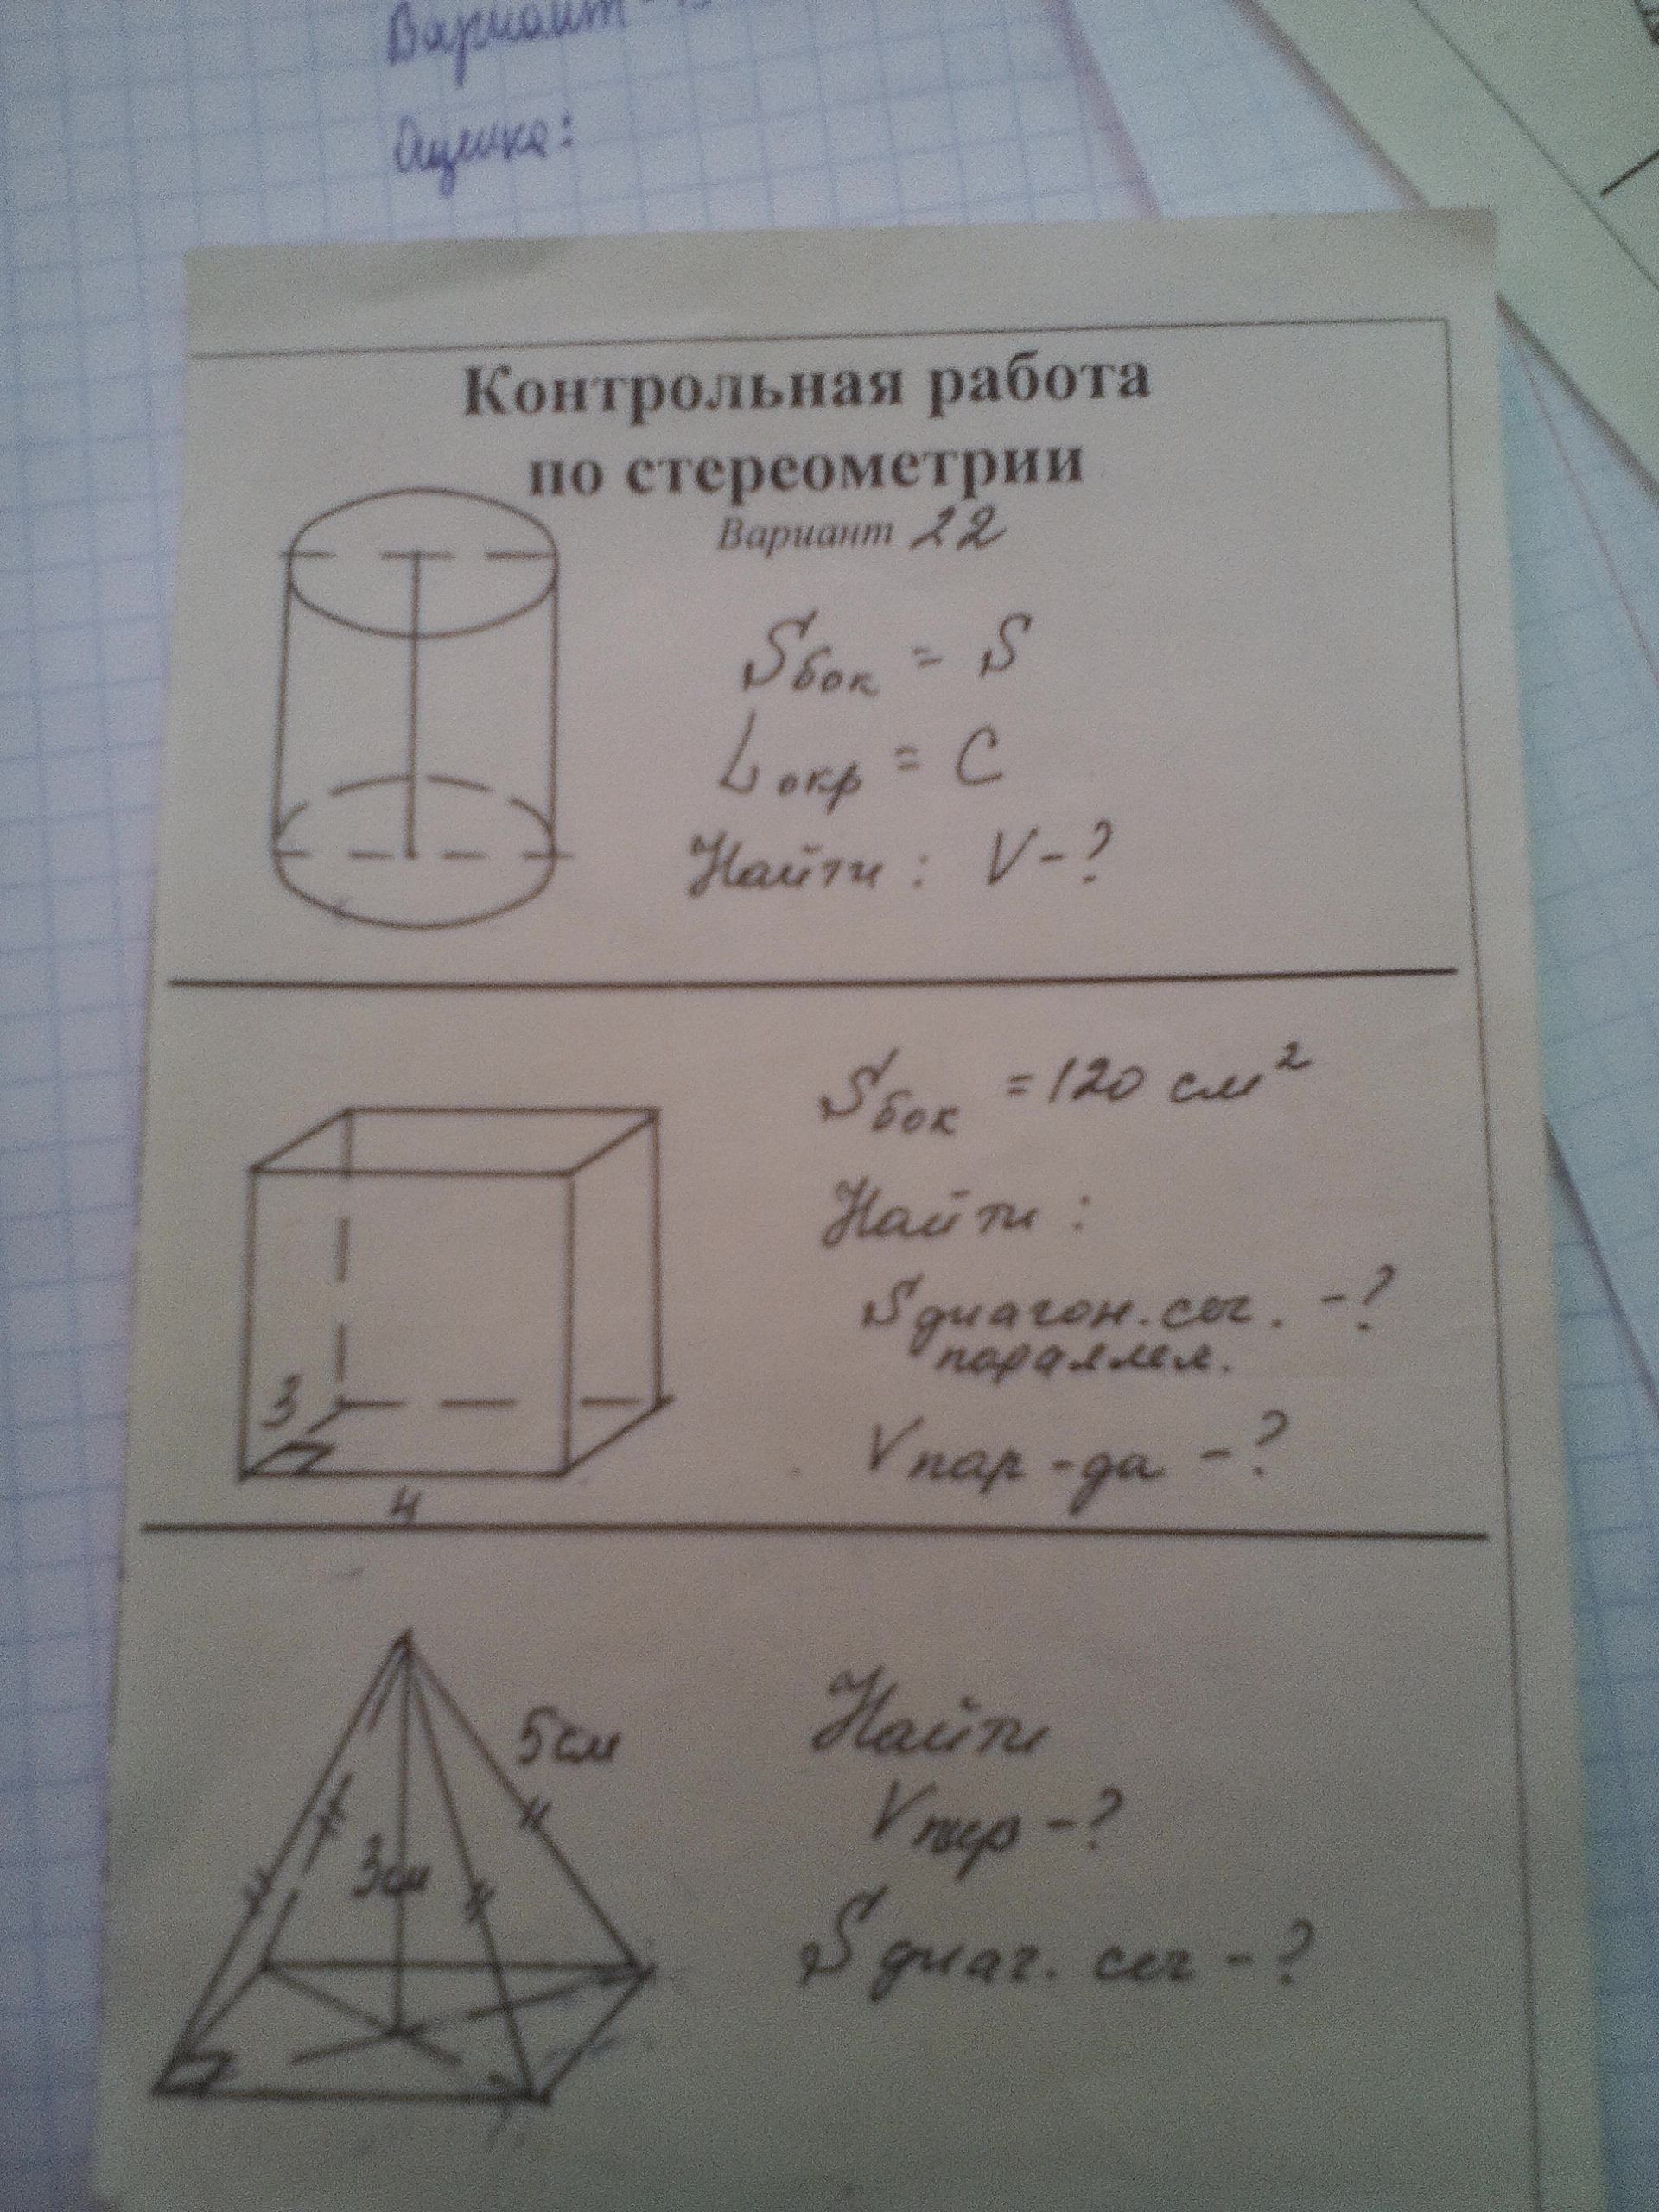 Вариант
Оценка:
Контрольная работа
по стереометрии
Вариант 22
Sбок = S
Lокр = C
Найти : V-?
Sбок = 120 см²
Найти :
Sдиагон.сеч. -?
параллел.
3
Vпар-да -?
4
Найти
5см
Vпир -?
3см
Sдиаг. сеч -?